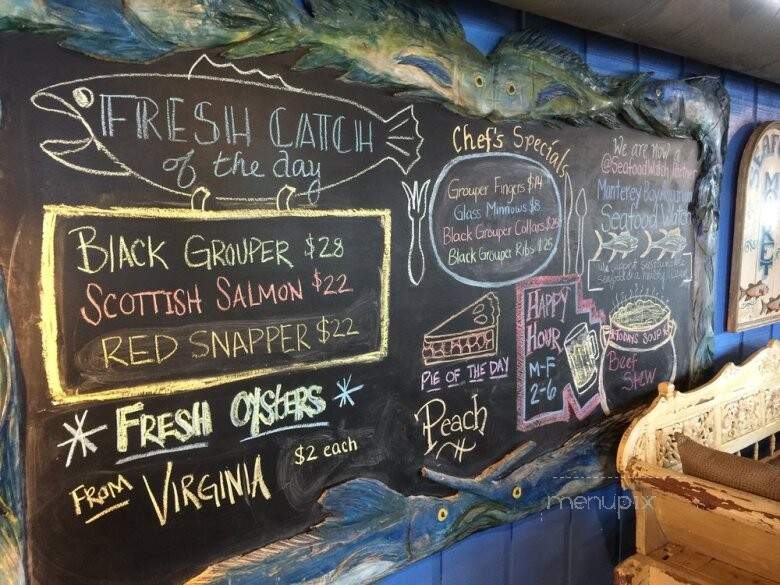 FRESH CATCH
of the day
BLACK GROUPER $28
SCOTTISH SALMON $22
RED SNAPPER $22
FRESH OYSTERS
$2 each
FROM VIRGINIA
Chef's Specials
Grouper Fingers $14
Glass Minnows $8
Black Grouper Collars $25
Black Grouper Ribs $25
PIE OF THE DAY
Peach
HAPPY
HOUR
M-F
2-6
We are now a
@SeafoodWatch Partner
Monterey Bay Aquarium
Seafood Watch
We support sustainable
seafood & a healthy
TODAYS SOUP
Beef
Stew
MARKET
menupix